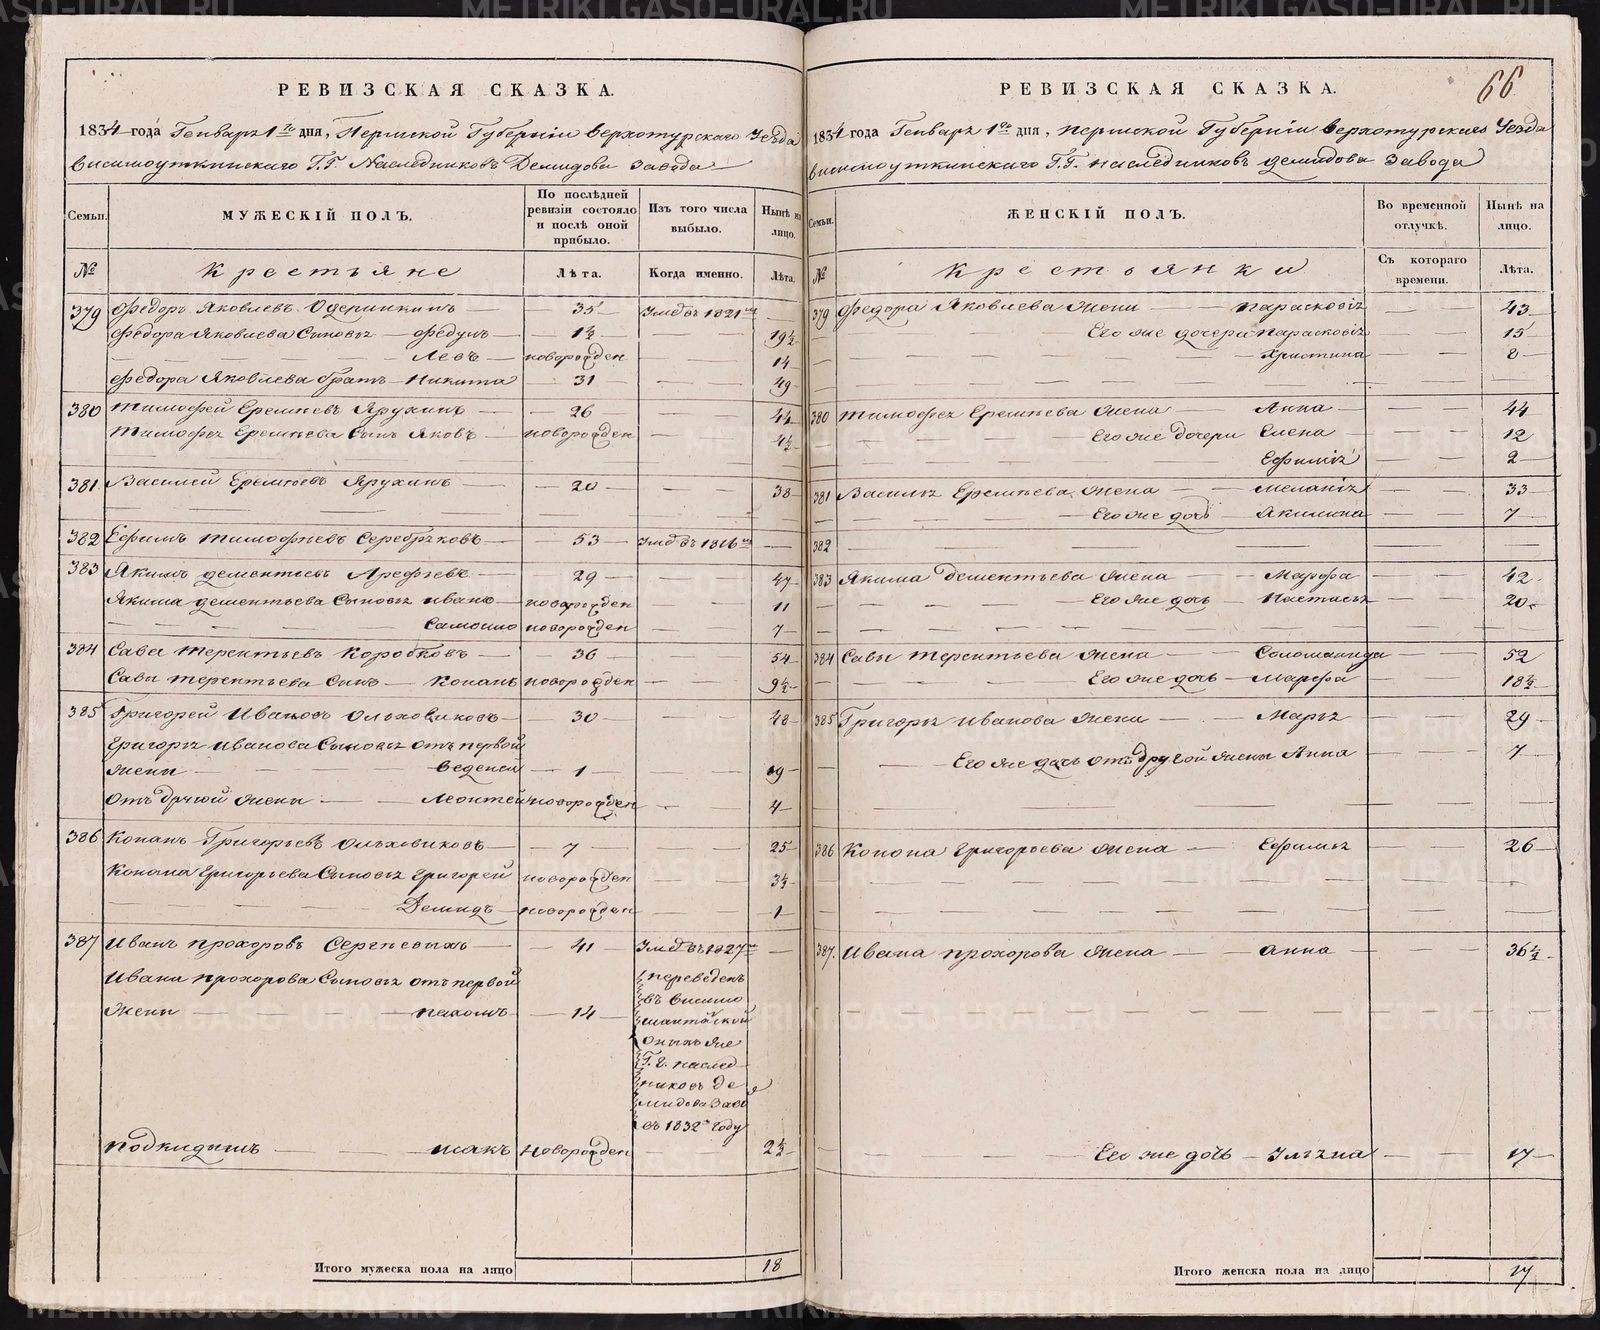 РЕВИЗСКАЯ СКАЗКА.
1834 года Генваря 1го дня, Пермской Губерніи Верхотурскаго Уезда
Висимоуткинскаго Г.Г. Наследниковъ Демидова Завода
Семьи. МУЖЕСКІЙ ПОЛЪ. По послѣдней ревизіи состояло и послѣ оной прибыло. Изъ того числа выбыло. Нынѣ на лицо.
№ Крестьяне Лѣта. Когда именно. Лѣта.
379 Федоръ Яковлевъ 35 Умеръ 1821
Федора Яковлева Сыновья Федулъ 1½ 19½
Левъ новорожден 14
Федора Яковлева братъ Никита 31 49
380 Тимофей Еремеевъ Ярухинъ 26 44
Тимофея Еремеева Сынъ Яковъ новорожден 4½
381 Василей Еремеевъ Ярухинъ 20 38
382 Ефимъ Тимофеевъ Серебряковъ 53 Умеръ 1816
383 Якимъ Дементьевъ Арефьевъ 29 47
Якима Дементьева Сыновья Иванъ новорожден 11
Самойло новорожден 7
384 Сава Терентьевъ Коробковъ 36 54
Савы Терентьева Сынъ Конанъ новорожден 9½
385 Григорей Ивановъ Ольховиковъ 30 48
Григорья Иванова Сыновья отъ первой
жены Веденей 1 19
Отъ другой жены Леонтей новорожден 4
386 Конанъ Григорьевъ Ольховиковъ 7 25
Конана Григорьева Сыновья Григорей новорожден 3½
Демидъ новорожден 1
387 Иванъ Прохоровъ Сергеевыхъ 41 Умеръ 1827
Ивана Прохорова Сыновья отъ первой
жены Пахомъ 14
переведенъ
въ Висимо
шайтанской
оныхъ же
Г.Г. наслед
никовъ Де
мидова Заво
въ 1832 году
Подкидышъ Исакъ Новорожден 2½
Итого мужеска пола на лицо 18
66
РЕВИЗСКАЯ СКАЗКА.
1834 года Генваря 1го дня, Пермской Губерніи Верхотурскаго Уезда
Висимоуткинскаго Г.Г. Наследниковъ Демидова Завода
Семьи. ЖЕНСКІЙ ПОЛЪ. Во временной отлучкѣ. Нынѣ на лицо.
№ Крестьянки Съ котораго времени. Лѣта.
379 Федора Яковлева жена Парасковія 43
Его же дочери Парасковія 15
Христина 8
380 Тимофея Еремеева жена Анна 44
Его же дочери Елена 12
Ефимія 2
381 Василья Еремеева жена Меланія 33
Его же дочь Акилина 7
382
383 Якима Дементьева жена Марфа 42
Его же дочь Настасья 20
384 Савы Терентьева жена Соломанида 52
Его же дочь Марфа 18½
385 Григорья Иванова жена Марья 29
Его же дочь отъ другой жены Анна 7
386 Конона Григорьева жена Ефимья 26
387. Ивана Прохорова жена Анна 36½
Его же дочь Ульяна 17
Итого женска пола на лицо 17
METRIKI.GASO-URAL.RU